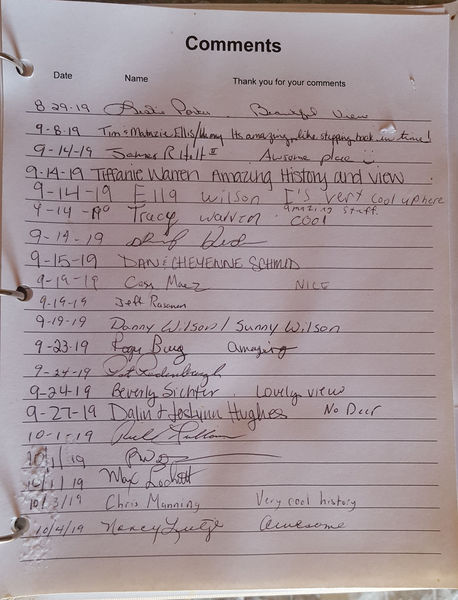 Comments
Date Name Thank you for your comments
8-29-19 Beautiful View
9-8-19 Tim & Ellis/ Its amazing, like stepping back in time!
9-14-19 James R Holt II Awsome place
9-14-19 Tiffanie Warren Amazing History and view
9-14-19 Ella Wilson I's very cool up here
amazing stuff.
9-14-19 Tracy Warren cool
9-14-19
9-15-19 DAN & CHEYENNE SCHMID
9-19-19 Cass NICE
9-19-19 Jeff
9-19-19 Danny Wilson / Sunny Wilson
9-23-19 Roger Amazing
9-24-19 Pat
9-24-19 Beverly Sichter Lovely view
9-27-19 Dalin & Hughes No Deer
10-1-19
10/1/19
10/1/19 Max
10/3/19 Chris Manning Very cool history
10/4/19 Nancy Awesome